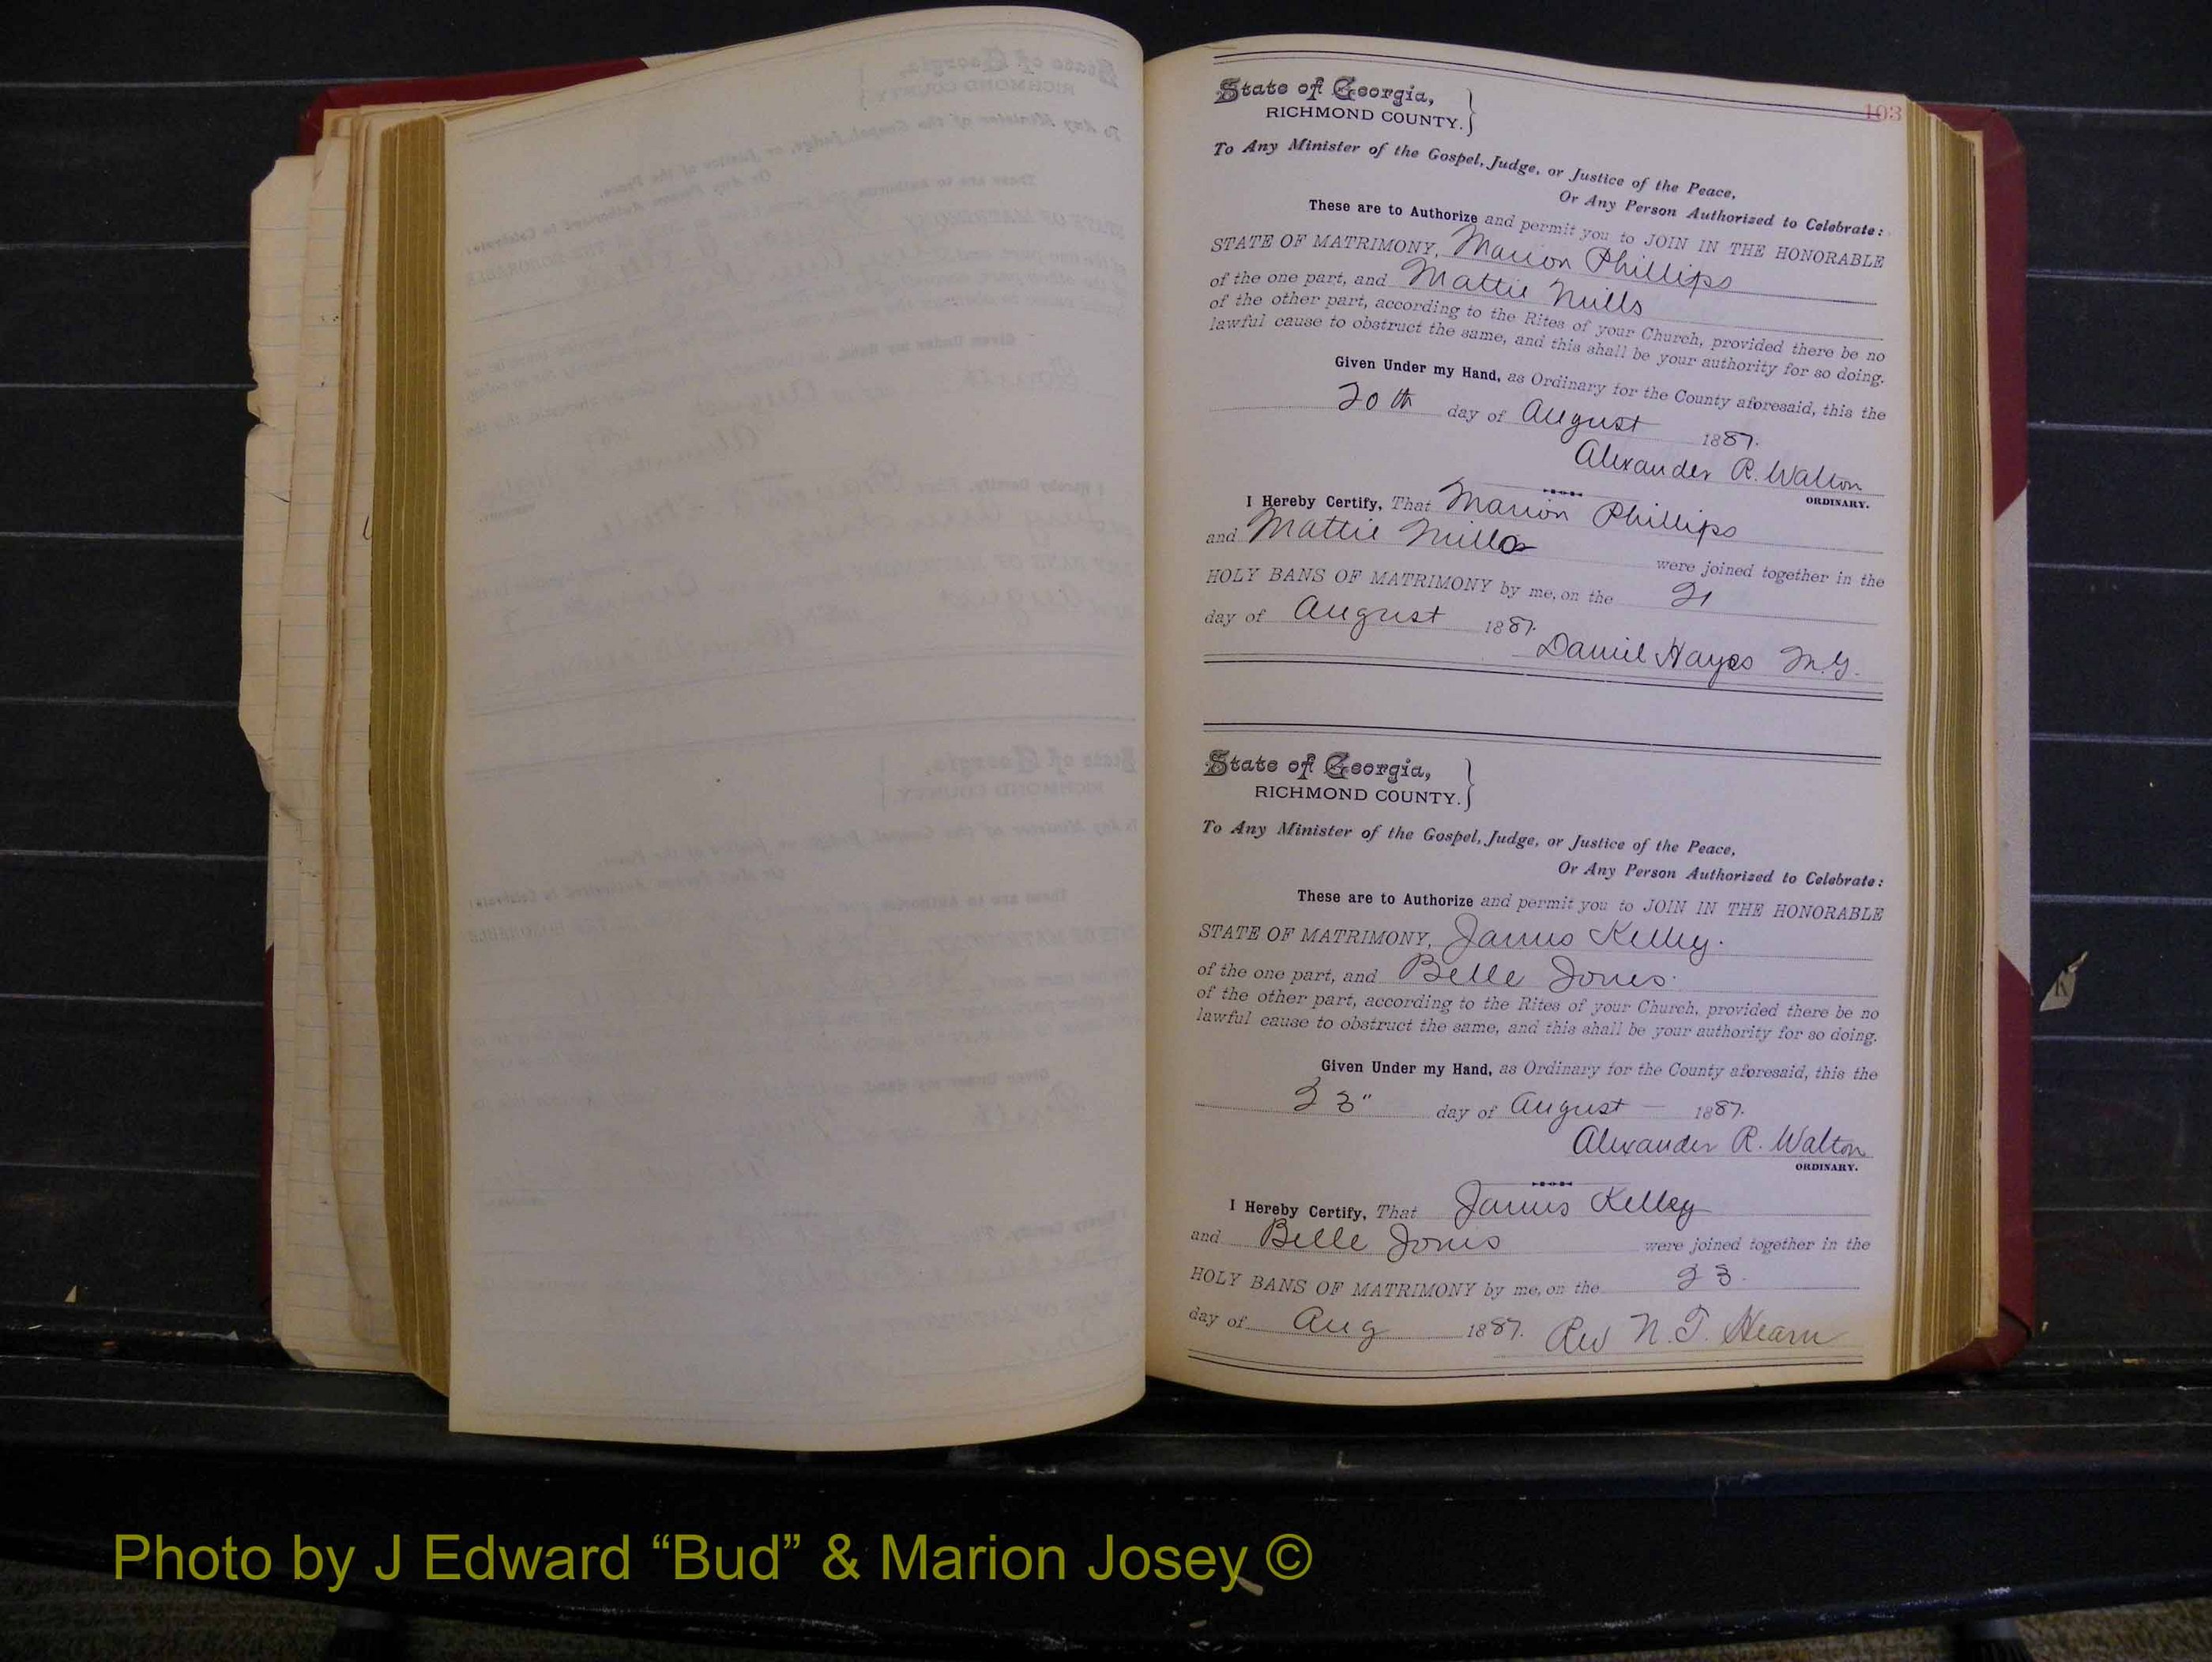 103
State of Georgia,
RICHMOND COUNTY.
To Any Minister of the Gospel, Judge, or Justice of the Peace,
Or Any Person Authorized to Celebrate:
These are to Authorize and permit you to JOIN IN THE HONORABLE
STATE OF MATRIMONY, Marion Phillips
of the one part, and Mattie Mills
of the other part, according to the Rites of your Church, provided there be no
lawful cause to obstruct the same, and this shall be your authority for so doing.
Given Under my Hand, as Ordinary for the County aforesaid, this the
20th day of August 1887.
Alexander R. Walton
ORDINARY.
I Hereby Certify, That Marion Phillips
and Mattie Mills were joined together in the
HOLY BANS OF MATRIMONY by me, on the 21
day of August 1887.
Daniel Hayes M.G.
State of Georgia,
RICHMOND COUNTY.
To Any Minister of the Gospel, Judge, or Justice of the Peace,
Or Any Person Authorized to Celebrate:
These are to Authorize and permit you to JOIN IN THE HONORABLE
STATE OF MATRIMONY, James Kelley.
of the one part, and Belle Jones.
of the other part, according to the Rites of your Church, provided there be no
lawful cause to obstruct the same, and this shall be your authority for so doing.
Given Under my Hand, as Ordinary for the County aforesaid, this the
23" day of August 1887.
Alexander R. Walton
ORDINARY.
I Hereby Certify, That James Kelley
and Belle Jones were joined together in the
HOLY BANS OF MATRIMONY by me, on the 23.
day of Aug 1887. Rev N. T. Hearn
Photo by J Edward “Bud” & Marion Josey ©